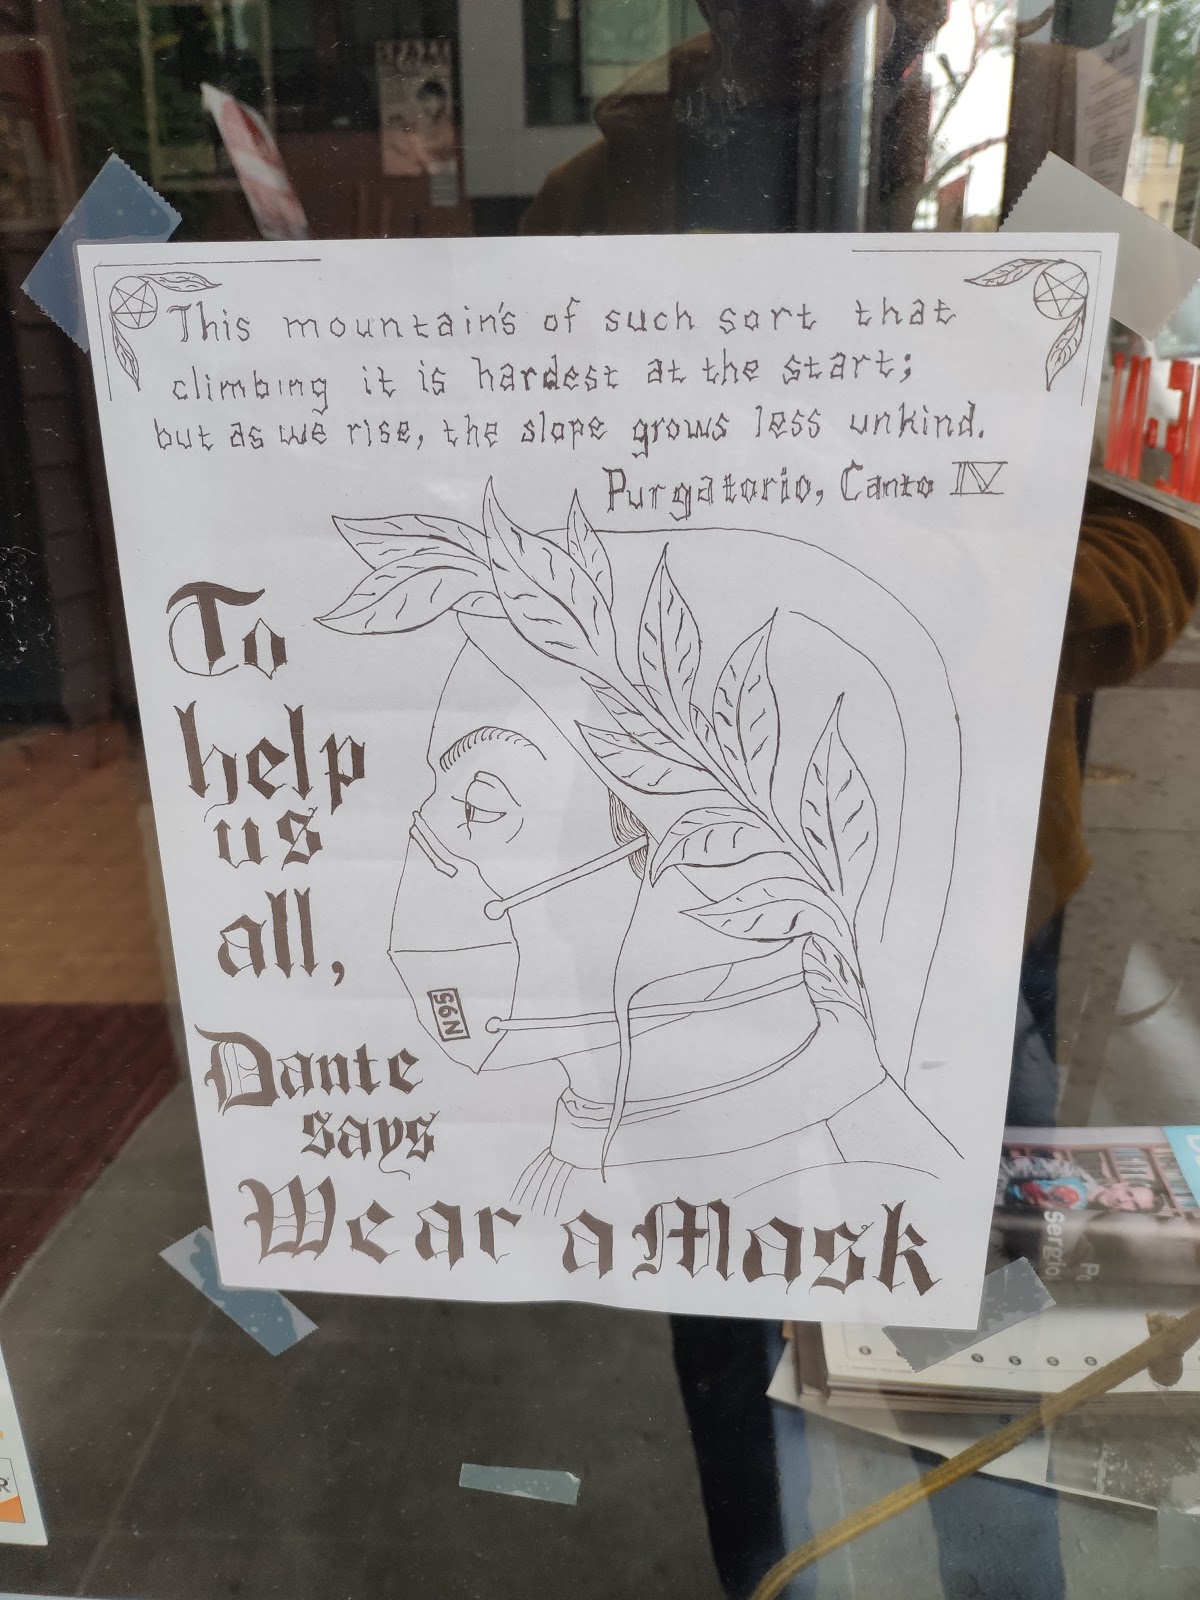 This mountain's of such sort that
climbing it is hardest at the start;
but as we rise, the slope grows less unkind.
Purgatorio, Canto IV
To
help
us
all,
N95
Dante
says
Wear a Mask
sergio